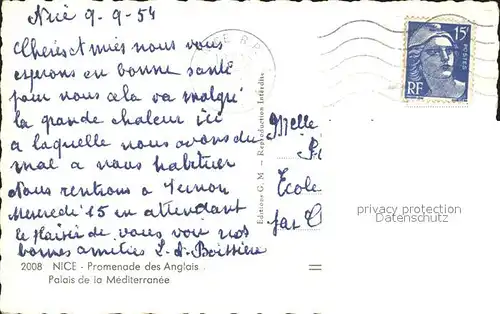 Nice 9-9-54
Chères amies nous vous
esperons en bonne santé
pour nous cela va malgré
la grande chaleur ici
a laquelle nous avons du
mal a nous habituer
Nous rentrons a Vernon
Mercredi 15 en attendant
le plaisir de vous voir nos
bonnes amitiés L-A-Boissière
2008 NICE - Promenade des Anglais
Palais de la Méditerranée
Editions G. M - Reproduction Interdite
15F
POSTES
RF
Melle
Ecole
par
privacy protection
Datenschutz